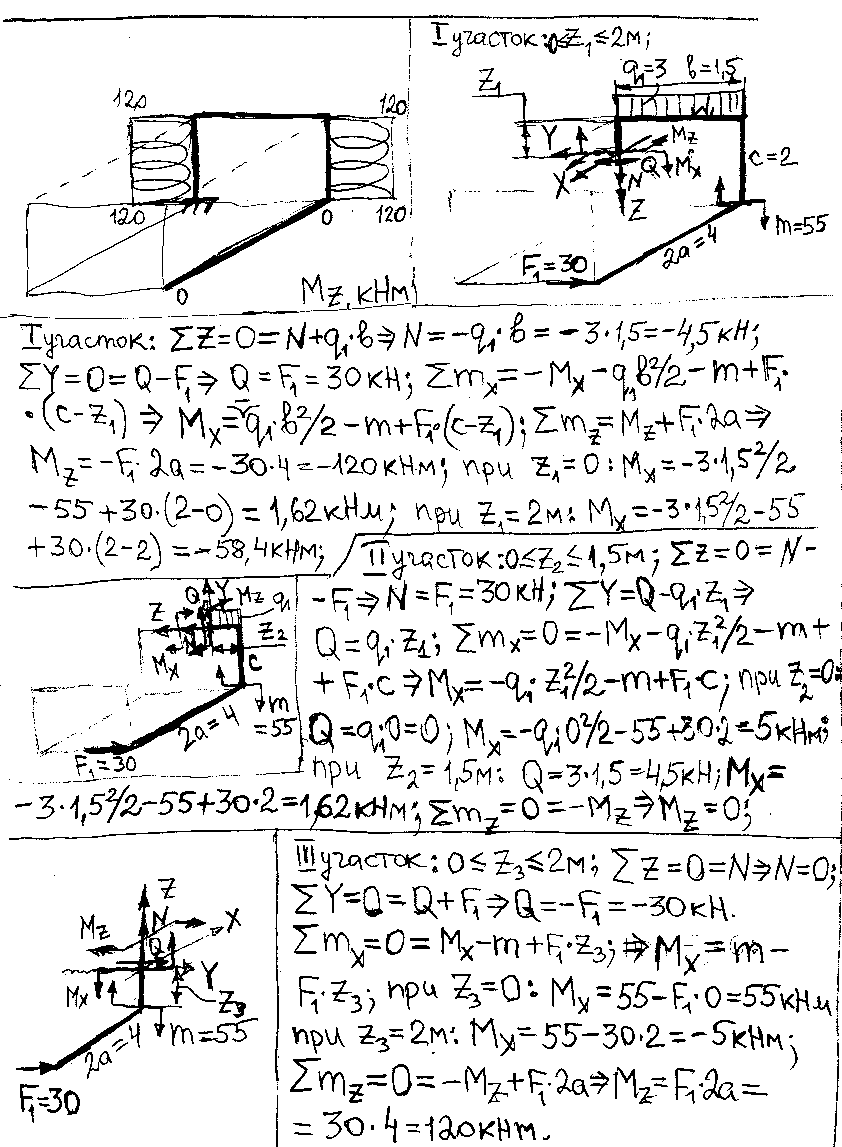 120
120
120
0
120
0
Mz, кНм
I участок: 0≤Z₁≤2м;
q₁=3 в=1,5
Z₁
Y
Mz
Q
Mx
X
N
Z
c=2
m=55
F₁=30
2a=4
I участок: ΣZ=0=N+q₁·в⇒N=-q₁·в=-3·1,5=-4,5кН;
ΣY=0=Q-F₁⇒ Q=F₁=30кН; Σmx=-Mx-q₁в²/2-m+F₁·
·(c-z₁) ⇒ Mx=-q₁·в²/2-m+F₁·(c-z₁); Σmz=Mz+F₁·2a⇒
Mz=-F₁·2a=-30·4=-120кНм; при z₁=0: Mx=-3·1,5²/2
-55+30·(2-0)=1,62кНм; при z₁=2м: Mx=-3·1,5²/2-55
+30·(2-2)=-58,4кНм;
II участок: 0≤Z₂≤1,5м; Σz=0=N-
-F₁⇒N=F₁=30кН; ΣY=Q-q₁·z₁⇒
Q=q₁·z₁; Σmx=0=-Mx-q₁·z₁²/2-m+
+F₁·c⇒Mx=-q₁·z₁²/2-m+F₁·c; при z₂=0:
Q=q₁·0=0; Mx=-q₁·0²/2-55+30·2=5кНм;
при z₂=1,5м: Q=3·1,5=4,5кН; Mx=
-3·1,5²/2-55+30·2=1,62кНм; Σmz=0=-Mz⇒Mz=0;
Q
Y
Mz
q₁
Z
Z₂
Mx
N
c
m
=55
2a=4
F₁=30
III участок: 0≤z₃≤2м; ΣZ=0=N⇒N=0;
ΣY=0=Q+F₁⇒Q=-F₁=-30кН.
Σmx=0=Mx-m+F₁·z₃; ⇒Mx=m-
F₁·z₃; при z₃=0: Mx=55-F₁·0=55кНм
при z₃=2м: Mx=55-30·2=-5кНм;
Σmz=0=-Mz+F₁·2a⇒Mz=F₁·2a=
=30·4=120кНм.
Z
N
Mz
X
Q
Y
Mx
Z₃
m=55
2a=4
F₁=30